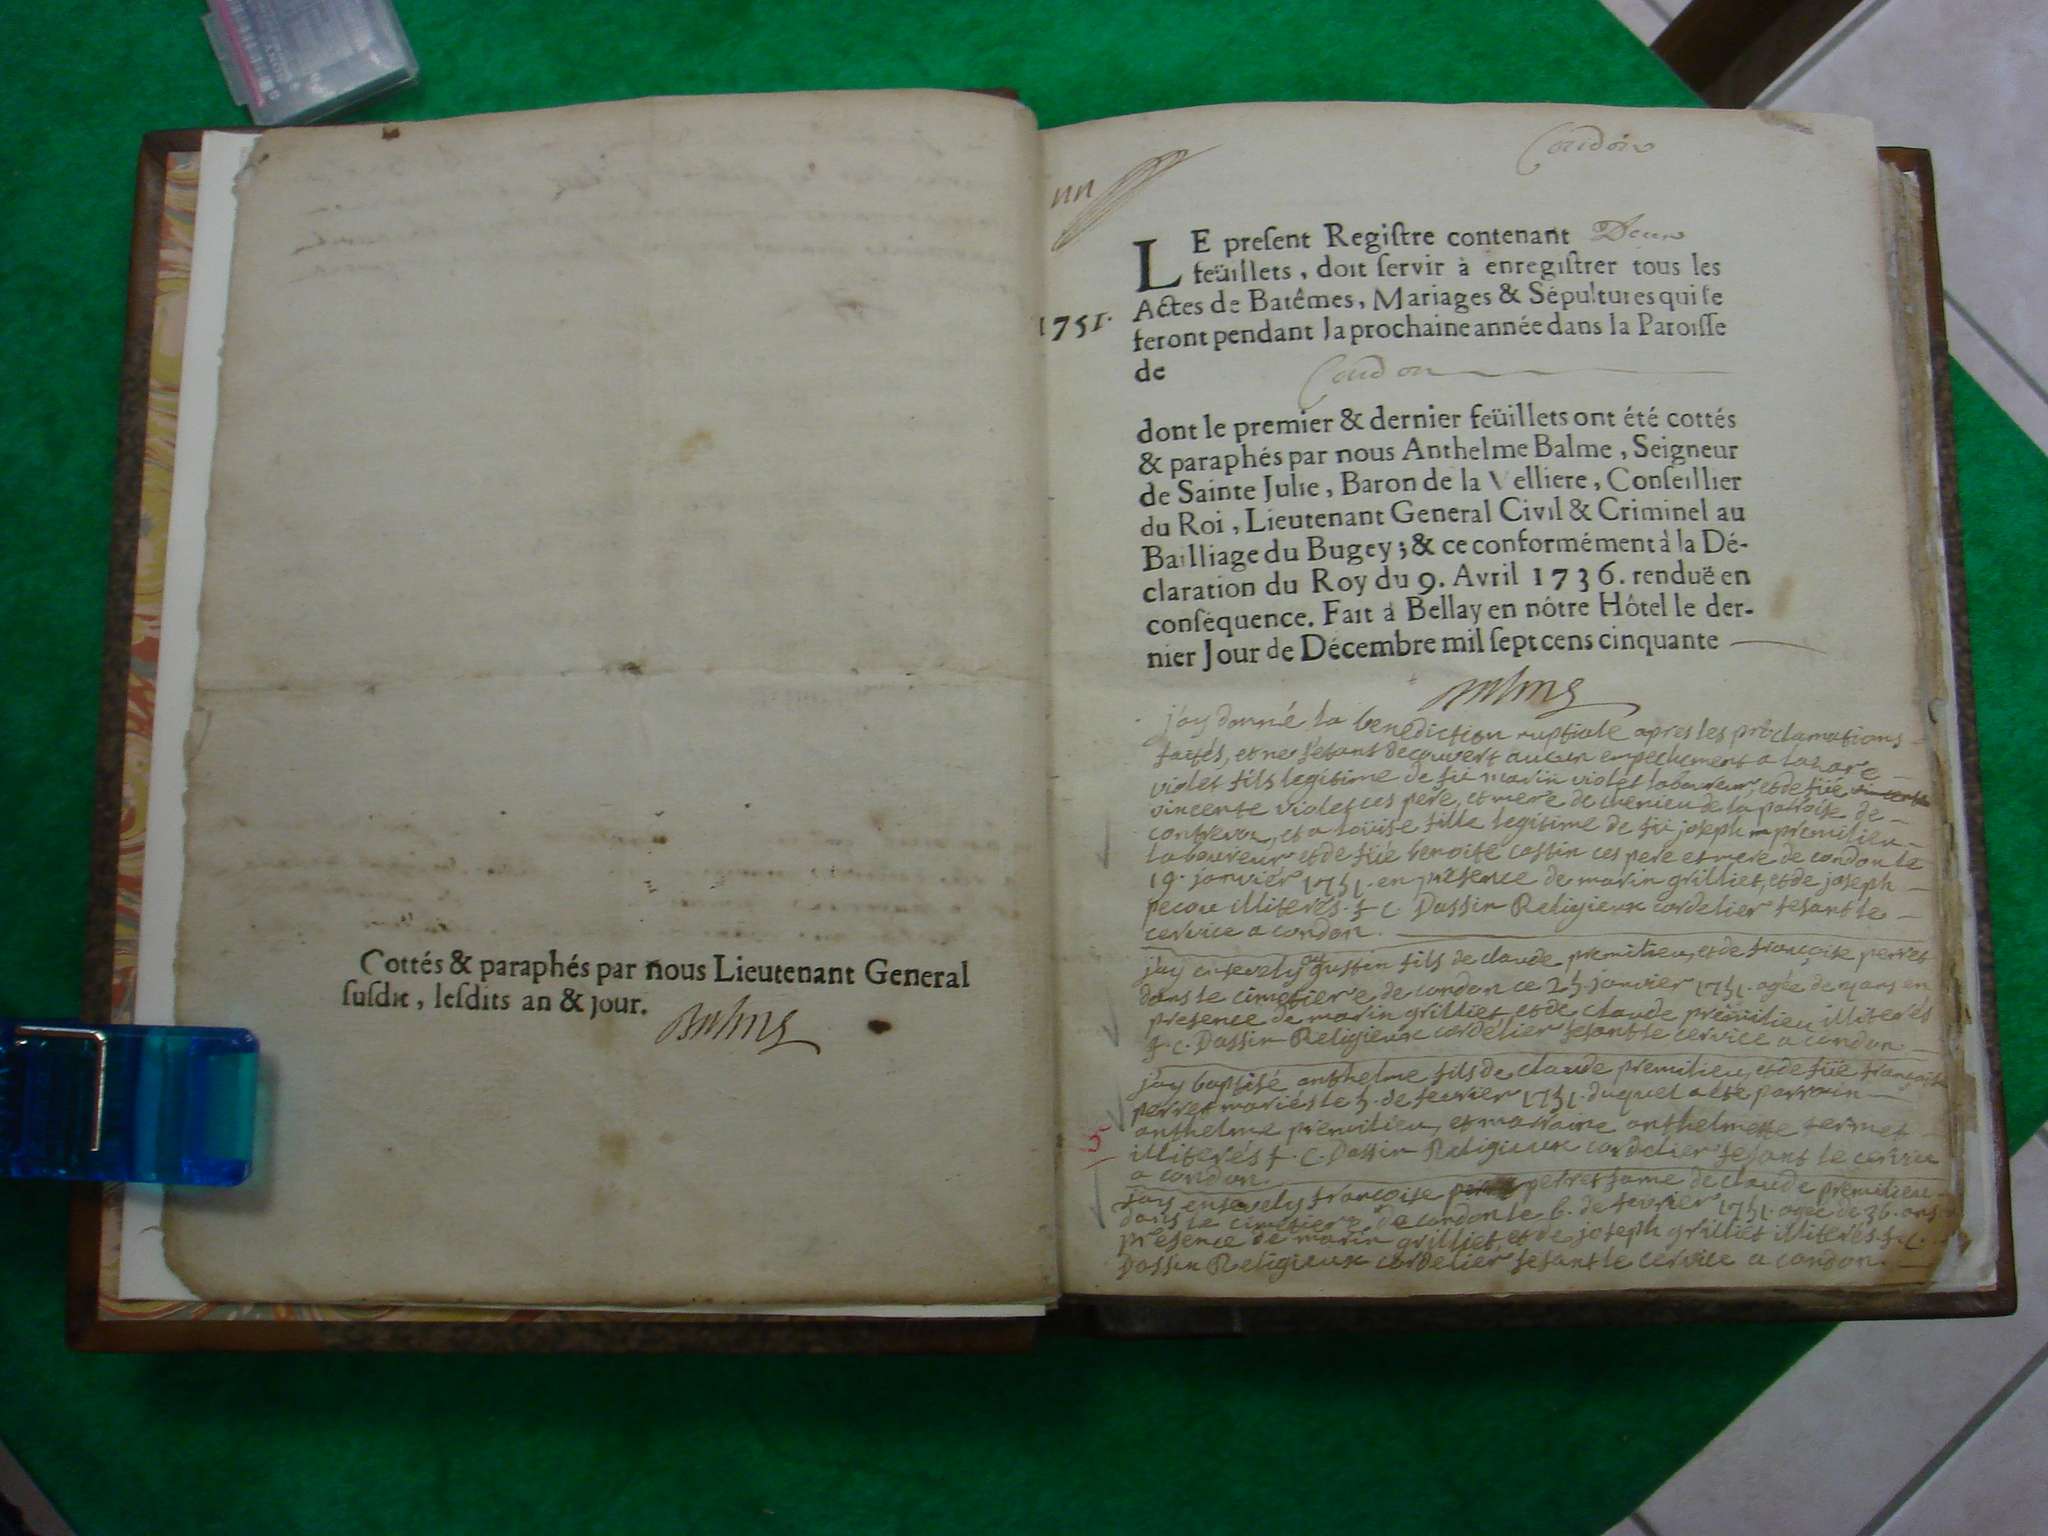 Cottés & paraphés par nous Lieutenant General
susdit, lesdits an & jour.
Balme
Condon
un
LE present Registre contenant Deux
feüillets, doit servir à enregistrer tous les
Actes de Batêmes, Mariages & Sépultures qui se
1751.
feront pendant la prochaine année dans la Paroisse
de Condon
dont le premier & dernier feüillets ont été cottés
& paraphés par nous Anthelme Balme, Seigneur
de Sainte Julie, Baron de la Velliere, Conseillier
du Roi, Lieutenant General Civil & Criminel au
Bailliage du Bugey; & ce conformément à la Dé-
claration du Roy du 9. Avril 1736. renduë en
conséquence. Fait à Bellay en nôtre Hôtel le der-
nier Jour de Décembre mil sept cens cinquante
Balme
j'ay donné la benediction nuptiale apres les proclamations
faites, et ne s'etant decouvert aucun empechement a lazare
violet fils legitime de fü marin violet laboureur, et de füe
vincente violet ces pere, et mere de chenieu de la paroise de
contrevoz, et a loüise fille legitime de fü joseph premilieu
laboureur et de füe benoite cottin ces pere et mere de condon le
19. janvier 1751. en presence de marin grilliet, et de joseph
pecou illiterés. f. C. Dassin Religieux cordelier fesant le
cervice a condon.
j'ay ensevely gustin fils de claude premilieu, et de francoise perret
dans le cimetiere de condon ce 25 janvier 1751. agée de 9 ans en
presence de marin grilliet, et de claude premilieu illiterés
f. C. Dassin Religieux cordelier fesant le cervice a condon.
j'ay baptisé anthelme fils de claude premilieu, et de füe francoise
perret mariés le 5. de fevrier 1751. duquel a eté parrain
anthelme premilieu, et marraine anthelmette termet
illiterés f. C. Dassin Religieux cordelier fesant le cervice
a condon.
5
j'ay ensevely francoise perret fame de claude premilieu
dans le cimetiere de condon le 6. de fevrier 1751. agée de 36. ans
presence de marin grilliet, et de joseph grilliet illiterés f. C.
Dassin Religieux cordelier fesant le cervice a condon.